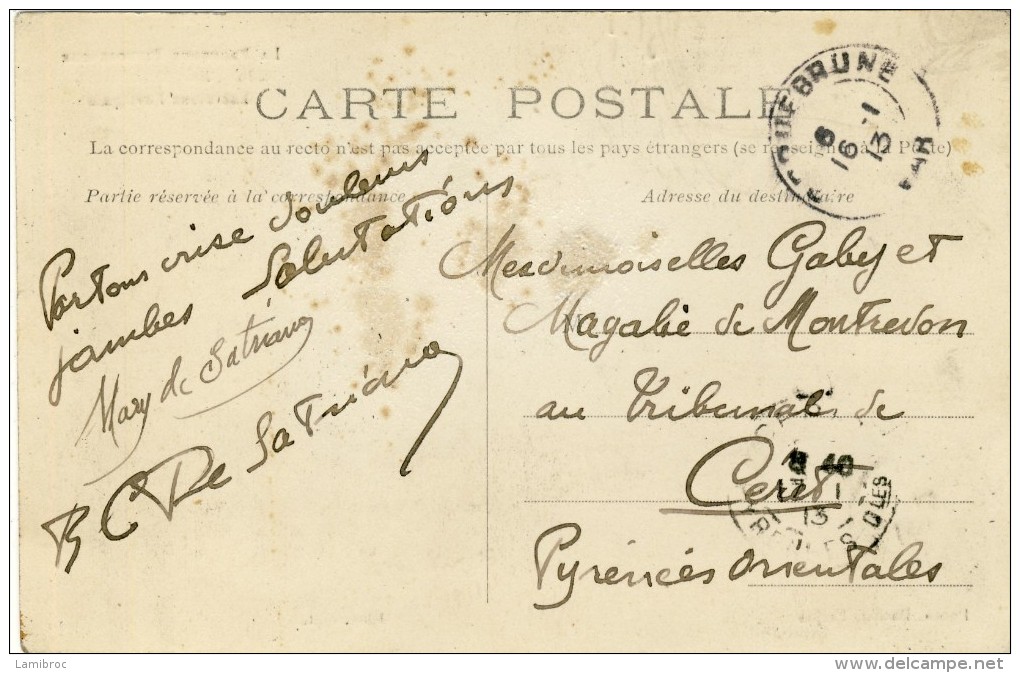 CARTE POSTALE
La correspondance au recto n'est pas acceptée par tous les pays étrangers (se renseigner à la Poste)
Partie réservée à la correspondance
Adresse du destinataire
ROQUEBRUNE
8
16 -1
13
VAR
Partons crise douleurs
jambes Salutations
Mary de Satriano
B C De Satriano
Mesdemoiselles Gaby et
Magalie de Montredon
au Tribunal de
Ceret
Pyrénées Orientales
10
17 1
13
PYRENEES OLES
Lambroc
delcampe.net